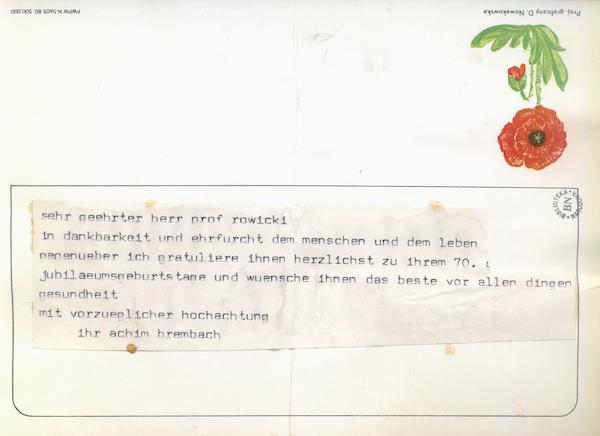 PWPW N-5605 80. 500.000
Proj. graficzny D. Nowakowska
BIBLIOTEKA NARODOWA
BN
sehr geehrter herr prof rowicki
in dankbarkeit und ehrfurcht dem menschen und dem leben
gegenueber ich gratuliere ihnen herzlichst zu ihrem 70.
jubilaeumsgeburtstage und wuensche ihnen das beste vor allen dingen
gesundheit
mit vorzueglicher hochachtung
ihr achim brembach